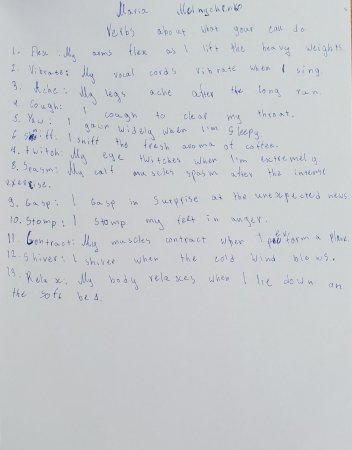 Maria Melnychenko
Verbs about what your can do
1. Flex: My arms flex as I lift the heavy weights.
2. Vibrate: My vocal cords vibrate when I sing.
3. Ache: My legs ache after the long run.
4. Cough: I cough to clear my throat.
5. Yaw: I yawn widely when I'm sleepy.
6. Sniff: I shift the fresh aroma of coffee.
7. Twitch: My eye twitches when I'm extremely.
8. Spasm: My calf muscles spasm after the intense
exercise.
9. Gasp: I Gasp in Surprise at the unexpected news.
10. Stomp: I stomp my feet in anger.
11. Contract: My muscles contract when I perform a plank.
12. Shiver: I shiver when the cold wind blows.
13. Relax: My body relaxes when I lie down on
the soft bed.